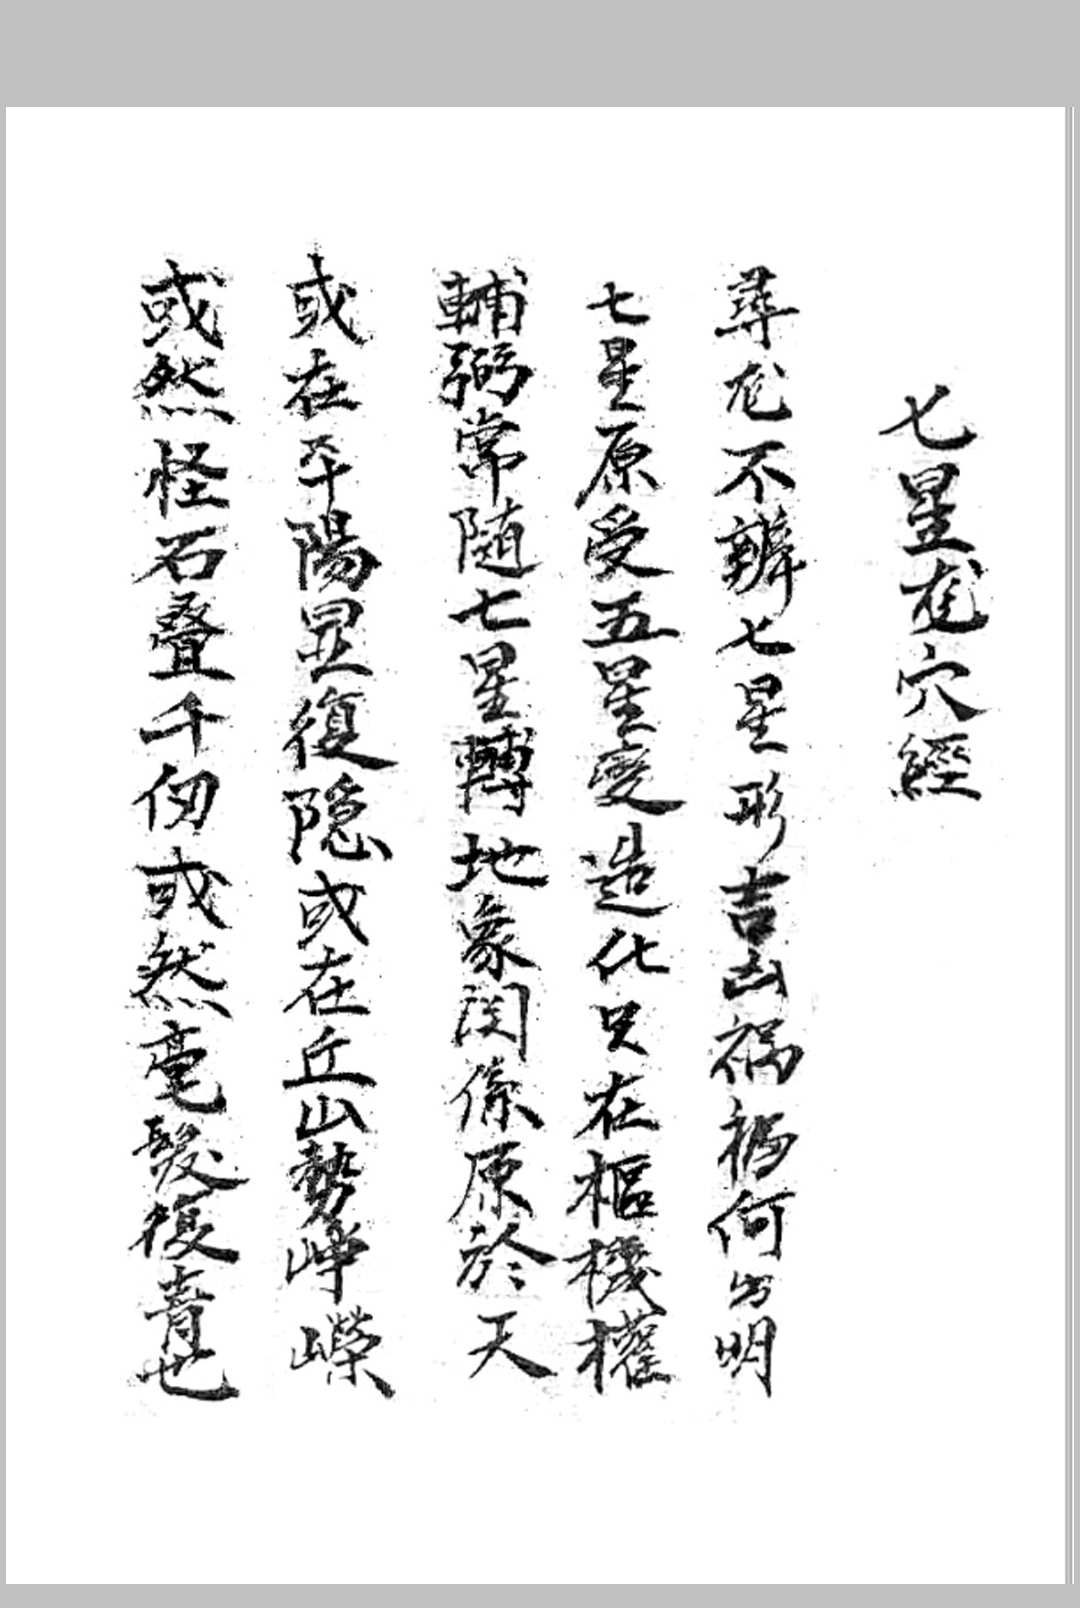 七星龙穴經
尋龙不辨七星形吉凶禍福何以明
七星原受五星变造化只在樞機權
輔弼常随七星轉地象関係原於天
或在平陽显復隐或在丘山勢崢嶸
或然怪石叠千仞或然毫髮復青也